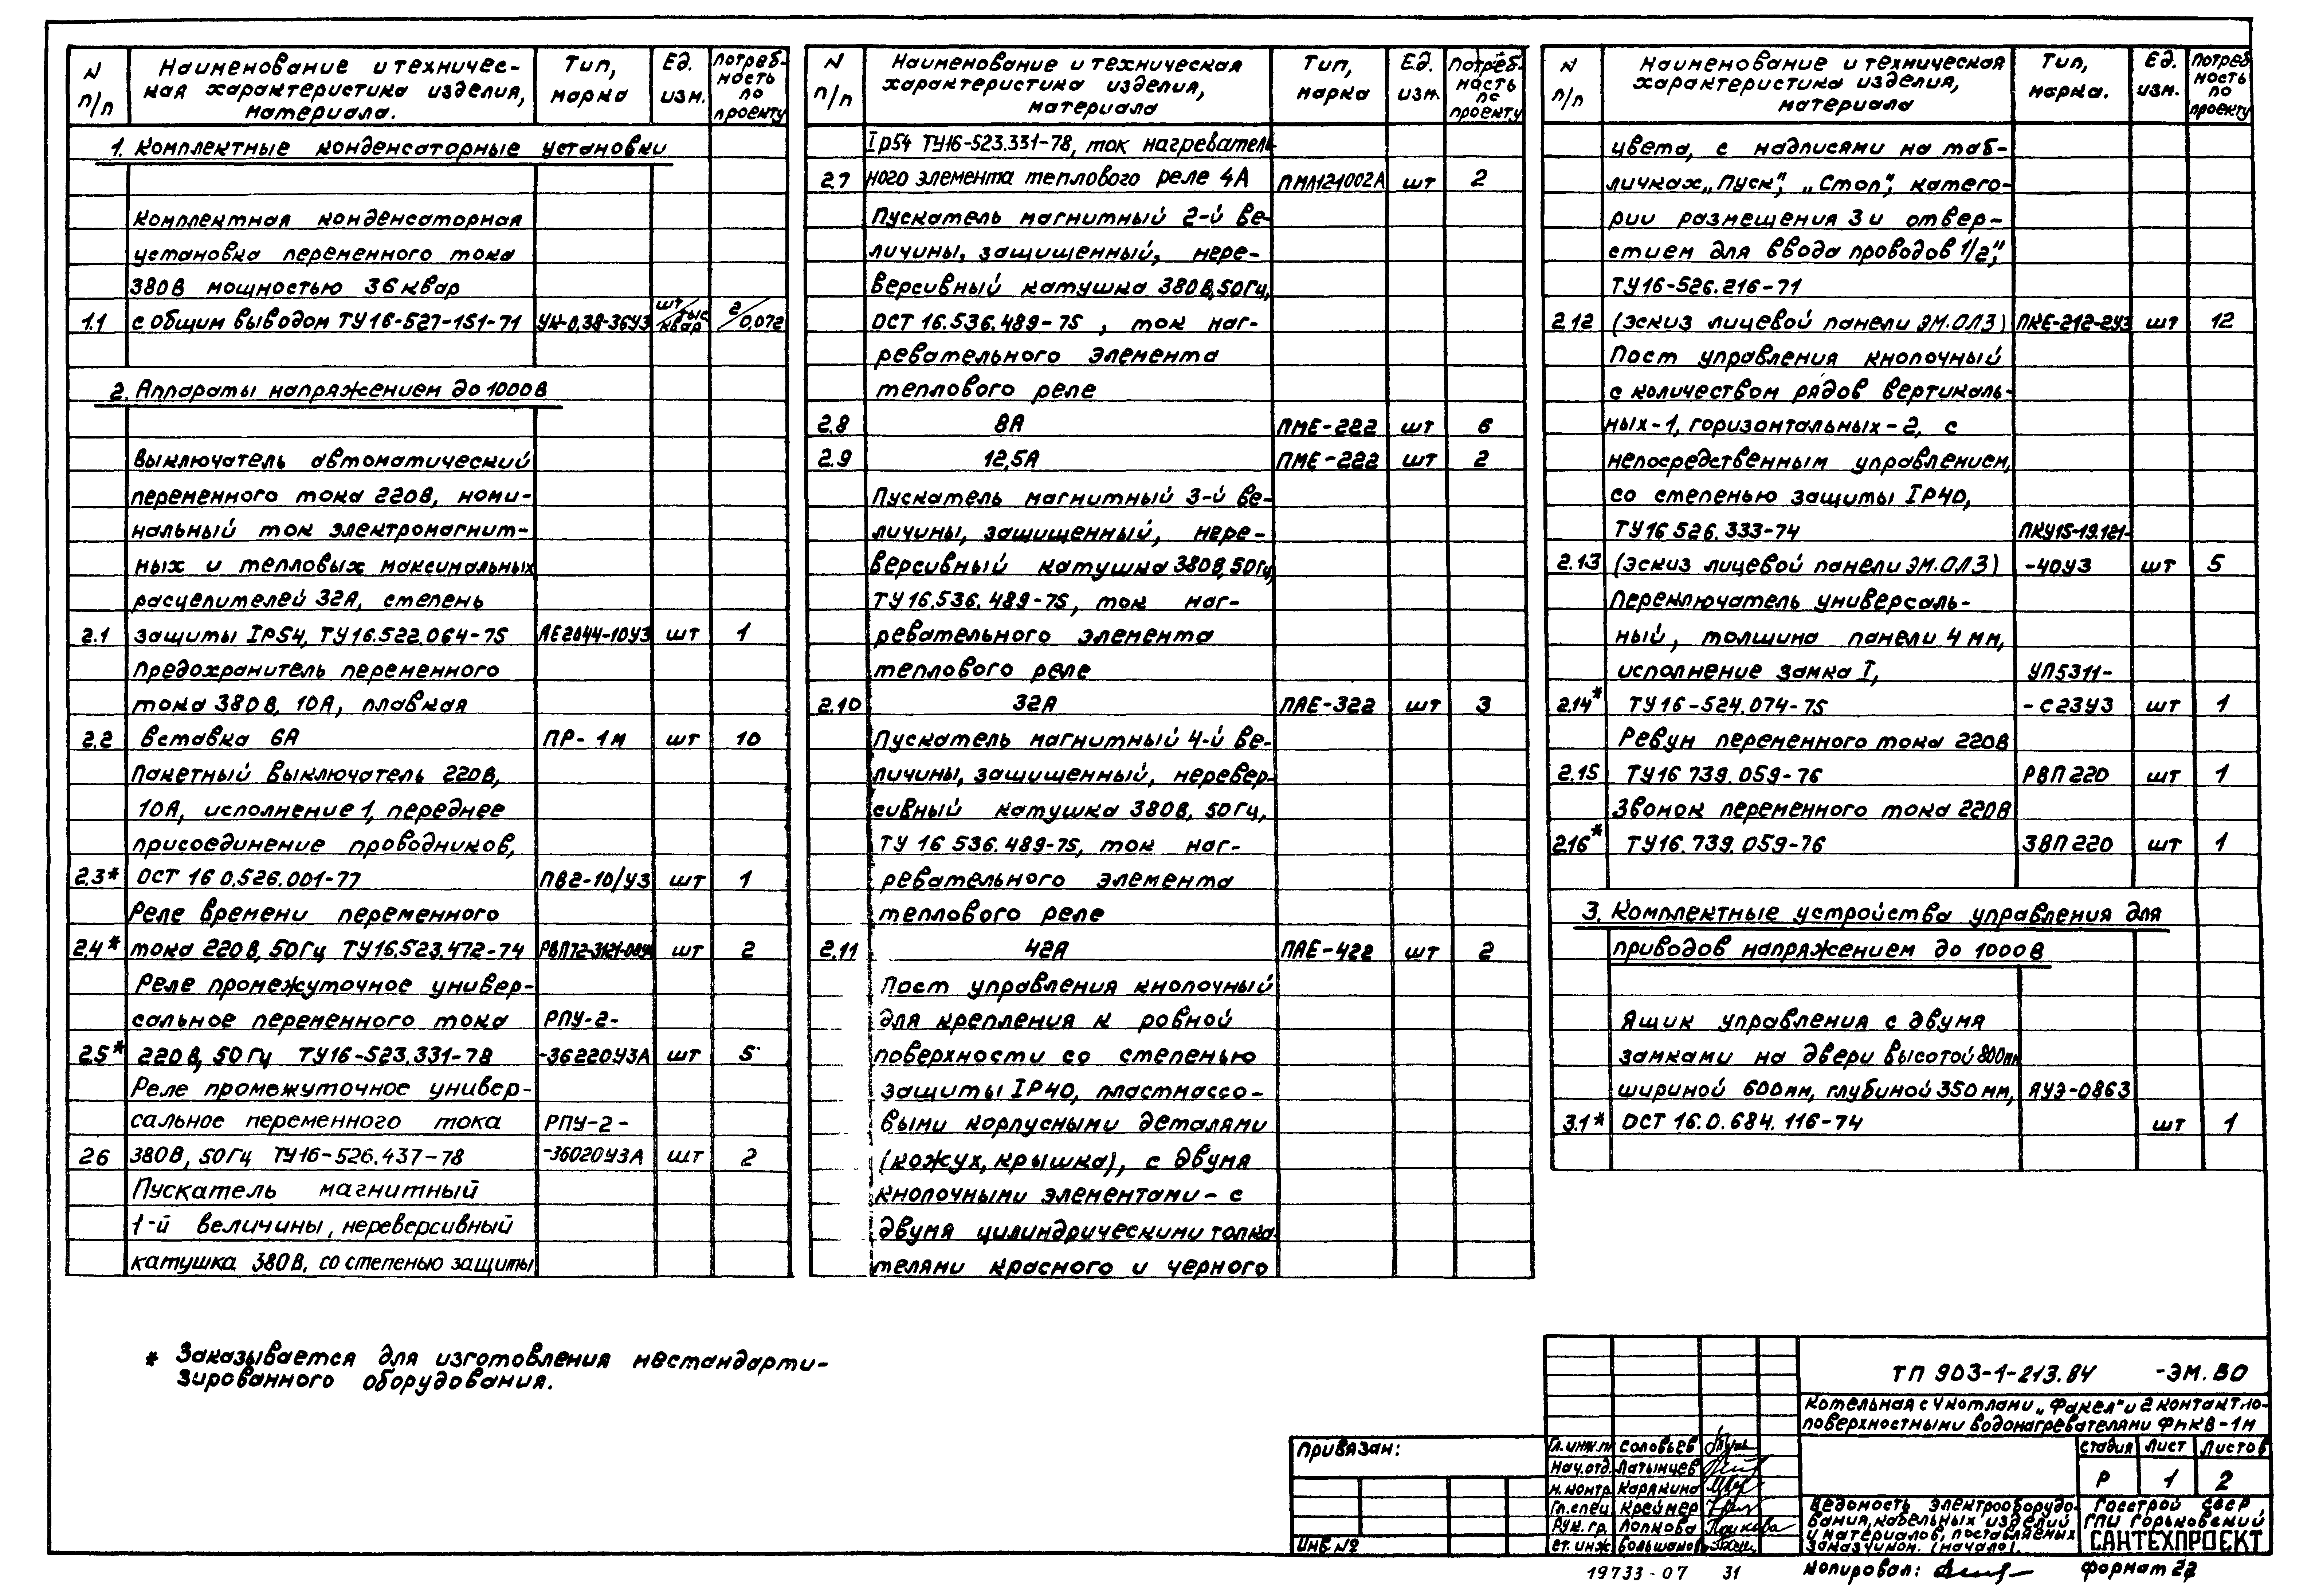 N п/п
Наименование и техничес-
кая характеристика изделия,
материала.
Тип, марка
Ед. изм.
Потреб-
ность
по
проекту
1. Комплектные конденсаторные установки
Комплектная конденсаторная
установка переменного тока
380В мощностью 36 квар
1.1 с общим выводом ТУ16-527-151-71 УК-0,38-36У3 шт/тыс квар 2/0,072
2. Аппараты напряжением до 1000В
Выключатель автоматический
переменного тока 220В, номи-
нальный ток электромагнит-
ных и тепловых максимальных
расцепителей 32А, степень
2.1 защиты IP54, ТУ16.522.064-75 АЕ2044-10У3 шт 1
Предохранитель переменного
тока 380В, 10А, плавкая
2.2 вставка 6А ПР-1м шт 10
Пакетный выключатель 220В,
10А, исполнение 1, переднее
присоединение проводников,
2.3* ОСТ 16 0.526.001-77 ПВ2-10/У3 шт 1
Реле времени переменного
2.4* тока 220В, 50Гц ТУ16.523.472-74 шт 2
Реле промежуточное универ-
сальное переменного тока РПУ-2-
2.5* 220В, 50Гц ТУ16-523.331-78 -36220У3А шт 5
Реле промежуточное универ-
сальное переменного тока РПУ-2-
2.6 380В, 50Гц ТУ16-526.437-78 -36020У3А шт 2
Пускатель магнитный
1-й величины, нереверсивный
катушка 380В, со степенью защиты
N п/п
Наименование и техническая
характеристика изделия,
материала
Тип, марка
Ед. изм.
Потреб-
ность
по
проекту
Ip54 ТУ16-523.331-78, ток нагреватель-
2.7 ного элемента теплового реле 4А ПМЛ121002А шт 2
Пускатель магнитный 2-й ве-
личины, защищенный, нере-
версивный катушка 380В, 50Гц,
ОСТ 16.536.489-75, ток наг-
ревательного элемента
теплового реле
2.8 8А ПМЕ-222 шт 6
2.9 12,5А ПМЕ-222 шт 2
Пускатель магнитный 3-й ве-
личины, защищенный, нере-
версивный катушка 380В, 50Гц,
ТУ16.536.489-75, ток наг-
ревательного элемента
теплового реле
2.10 32А ПАЕ-322 шт 3
Пускатель магнитный 4-й ве-
личины, защищенный, неревер-
сивный катушка 380В, 50Гц,
ТУ 16 536.489-75, ток наг-
ревательного элемента
теплового реле
2.11 42А ПАЕ-422 шт 2
Пост управления кнопочный
для крепления к ровной
поверхности со степенью
защиты IP40, пластмассо-
выми корпусными деталями
(кожух, крышка), с двумя
кнопочными элементами - с
двумя цилиндрическими толка-
телями красного и черного
N п/п
Наименование и техническая
характеристика изделия,
материала
Тип, марка.
Ед. изм.
Потреб-
ность
по
проекту
цвета, с надписями на таб-
личках „Пуск", „Стоп", катего-
рии размещения 3 и отвер-
стием для ввода проводов 1/2",
ТУ16-526.216-71
2.12 (эскиз лицевой панели ЭМ.ОЛ3) ПКЕ-212-2У3 шт 12
Пост управления кнопочный
с количеством рядов вертикаль-
ных-1, горизонтальных-2, с
непосредственным управлением,
со степенью защиты IP40,
ТУ16 526.333-74 ПКУ15-19.121-
2.13 (эскиз лицевой панели ЭМ.ОЛ3) -40У3 шт 5
Переключатель универсаль-
ный, толщина панели 4 мм,
исполнение замка I, УП5311-
2.14* ТУ16-524.074-75 -С23У3 шт 1
Ревун переменного тока 220В
2.15 ТУ16 739.059-76 РВП 220 шт 1
Звонок переменного тока 220В
2.16* ТУ16.739.059-76 ЗВП 220 шт 1
3. Комплектные устройства управления для
приводов напряжением до 1000В
Ящик управления с двумя
замками на двери высотой 800мм
шириной 600мм, глубиной 350мм, ЯУЭ-0863
3.1* ОСТ 16.0.684.116-74 шт 1
* Заказывается для изготовления нестандарти-
зированного оборудования.
ТП 903-1-213.84 -ЭМ.ВО
Котельная с 4 котлами „Факел" и 2 контактно-
поверхностными водонагревателями ФНКВ-1м
Привязан:
Инв №
Гл.инж.пр Соловьев
Нач.отд. Латынцев
н.контр. Карякина
Гл.спец Крейнер
Рук.гр. Попкова
ст.инж
стадия лист листов
Р 1 2
Ведомость электрооборудо-
вания, кабельных изделий
и материалов, поставляемых
заказчиком. (начало).
Госстрой СССР,
ГПИ Горьковский
САНТЕХПРОЕКТ
19733-07 31
Копировал:
Формат 22